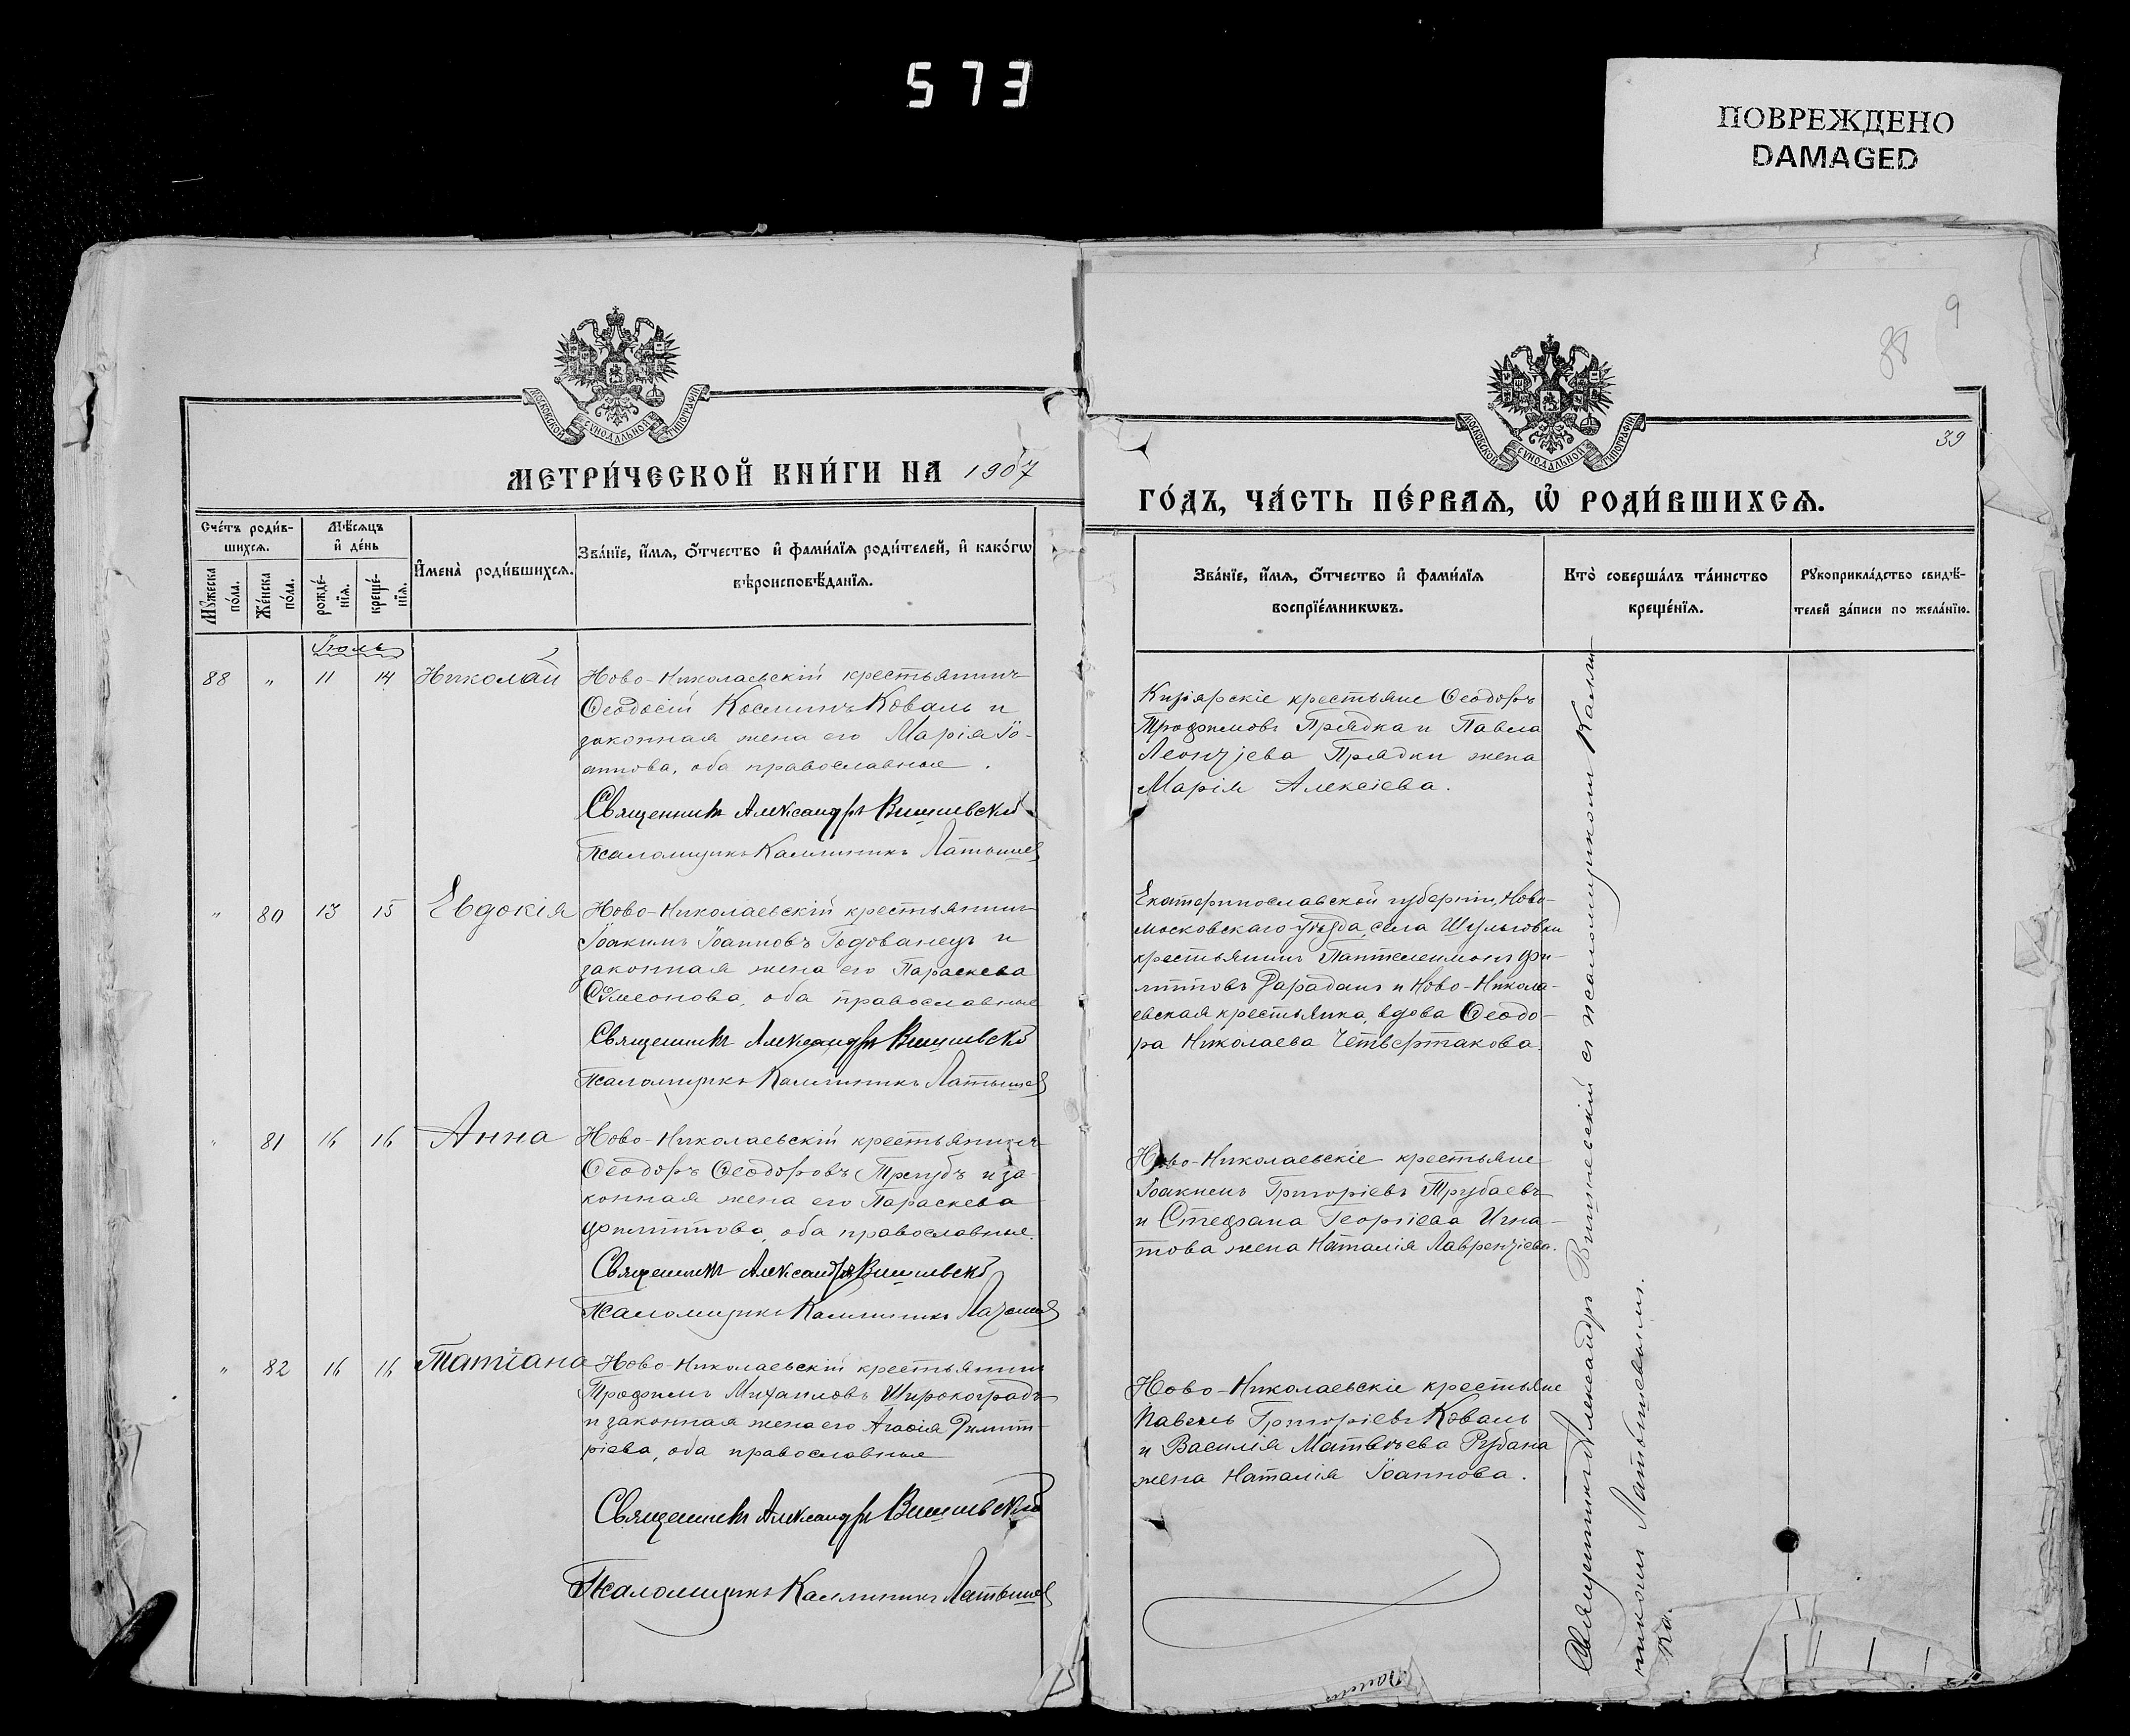 573
ПОВРЕЖДЕНО
DAMAGED
9
38
МОСКОВСКОЙ СѴНОДАЛЬНОЙ ТИПОГРАФІИ
МОСКОВСКОЙ СѴНОДАЛЬНОЙ ТИПОГРАФІИ
39
МЕТРИ́ЧЕСКОЙ КНИ́ГИ НА 1907
ГО́ДЪ, ЧА́СТЬ ПЕ́РВАѦ, Ѡ҆ РОДИ́ВШИХСѦ.
Сче́тъ роди́в-
шихсѧ.
Мꙋ́жеска по́ла.
Же́нска по́ла.
Мѣ́сѧцъ
и҆ де́нь
рожде́-
нїѧ.
креще́-
нїѧ.
И҆мена̀ роди́вшихсѧ.
Зва́нїе, и҆́мѧ, ѻ҆́тчество и҆ фами́лїѧ роди́телей, и҆ како́гѡ
вѣроисповѣ́данїѧ.
Зва́нїе, и҆́мѧ, ѻ҆́тчество и҆ фами́лїѧ
воспрїе́мникѡвъ.
Кто̀ соверша́лъ та́инство
креще́нїѧ.
Рꙋкоприкла́дство свидѣ́-
телей за́писи по жела́нїю.
Іюль
88 " 11 14 Николай
Ново-Николаевскій крестьянинъ
Ѳеодосій Косминъ Коваль и
законная жена его Марія Іо-
аннова, оба православные.
Священникъ Александръ Вишневскій
Псаломщикъ Каллиникъ Латышев
Кизіярскіе крестьяне Ѳеодоръ
Трофимовъ Прядка и Павла
Леонтіева Прядки жена
Марія Алексіева.
" 80 13 15 Евдокія
Ново-Николаевскій крестьянинъ
Іоакимъ Іоанновъ Годованецъ и
законная жена его Параскева
Сѵмеонова, оба православные
Священникъ Александръ Вишневскій
Псаломщикъ Каллиникъ Латышев
Екатеринославской губерніи, Ново-
московскаго уѣзда, села Шульговки
крестьянинъ Пантелеимонъ Фи-
липповъ и Ново-Никола-
евская крестьянка, вдова Ѳеодо-
ра Николаева Четвертакова.
" 81 16 16 Анна
Ново-Николаевскій крестьянинъ
Ѳеодоръ Ѳеодоровъ и за-
конная жена его Параскева
Филиппова, оба православные.
Священникъ Александръ Вишневскій
Псаломщикъ Каллиникъ Латышев
Ново-Николаевскіе крестьяне
Іоакимъ Григоріевъ Трубаевъ
и Стефана Георгіева Игна-
това жена Наталія Лаврентіева.
" 82 16 16 Татіана
Ново-Николаевскій крестьянинъ
Трофимъ Михаиловъ Широкоградъ
и законная жена его Агаѳія Димит-
ріева, оба православные
Священникъ Александръ Вишневскій
Псаломщикъ Каллиникъ Латышев
Ново-Николаевскіе крестьяне
Павелъ Григоріевъ Коваль
и Василія Матвѣева Рубана
жена Наталія Іоаннова.
Священникъ Александръ Вишневскій съ псаломщикомъ Калли-
никомъ Латышевымъ.